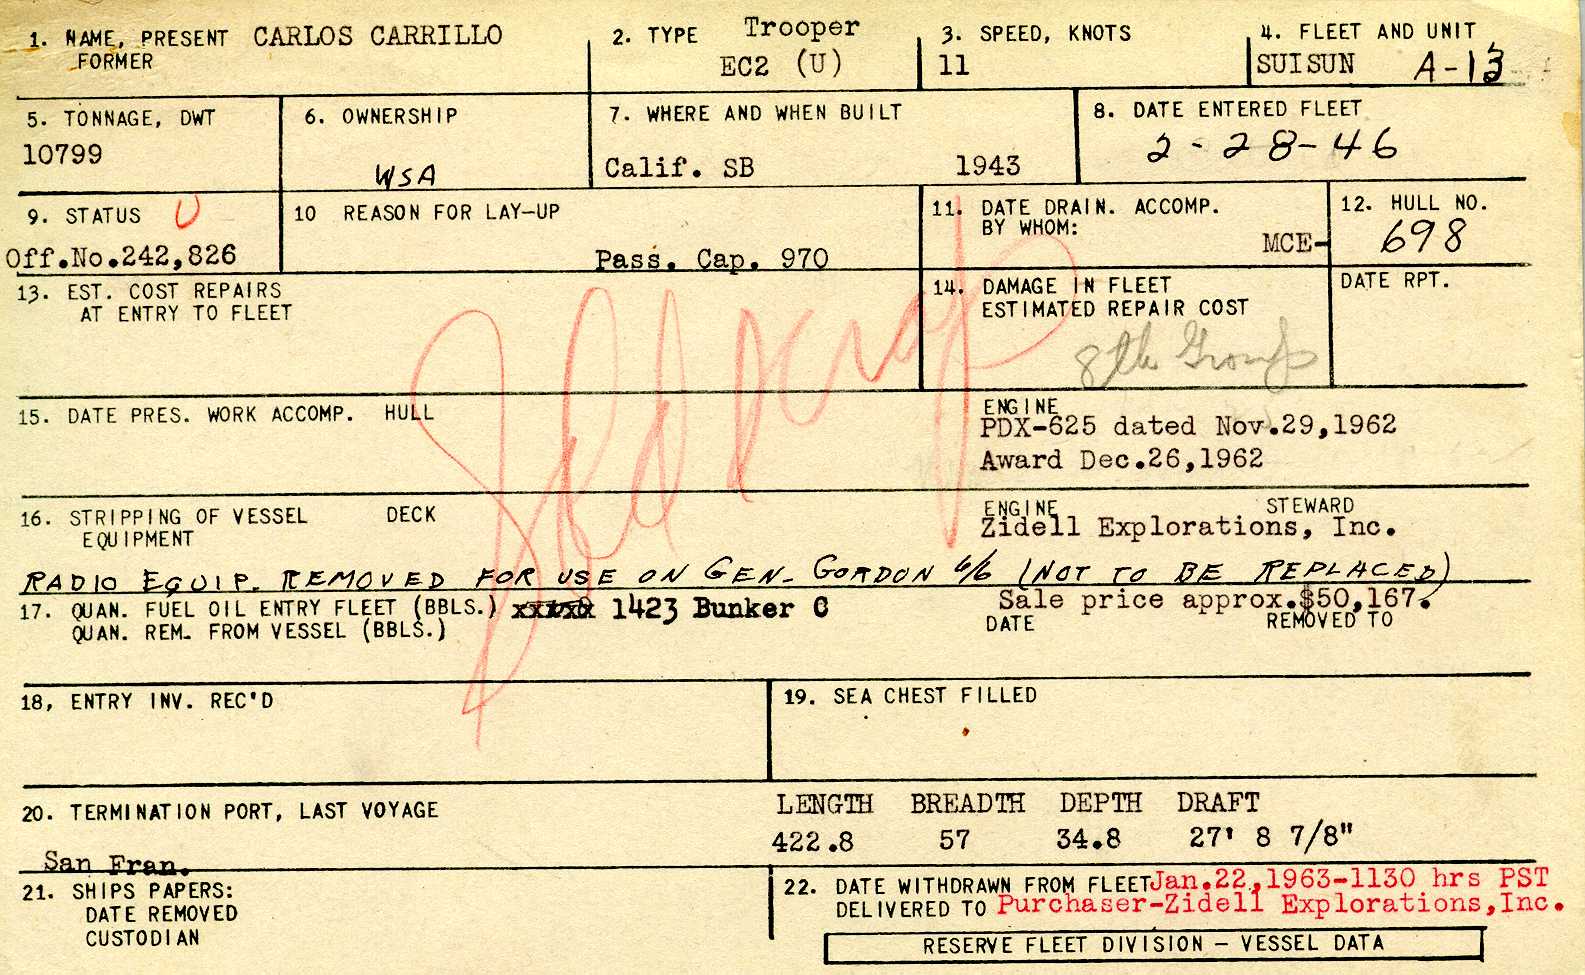 1. NAME, PRESENT CARLOS CARRILLO
FORMER
2. TYPE Trooper
EC2 (U)
3. SPEED, KNOTS
11
4. FLEET AND UNIT
SUISUN A-13
5. TONNAGE, DWT
10799
6. OWNERSHIP
WSA
7. WHERE AND WHEN BUILT
Calif. SB 1943
8. DATE ENTERED FLEET
2-28-46
9. STATUS U
Off.No.242,826
10 REASON FOR LAY-UP
Pass. Cap. 970
11. DATE DRAIN. ACCOMP.
BY WHOM:
MCE-
12. HULL NO.
698
13. EST. COST REPAIRS
AT ENTRY TO FLEET
14. DAMAGE IN FLEET
ESTIMATED REPAIR COST
8th Group
DATE RPT.
Sld scrap
15. DATE PRES. WORK ACCOMP. HULL
ENGINE
PDX-625 dated Nov.29,1962
Award Dec.26,1962
16. STRIPPING OF VESSEL DECK
EQUIPMENT
ENGINE STEWARD
Zidell Explorations, Inc.
RADIO EQUIP. REMOVED FOR USE ON GEN. GORDON 6/6 (NOT TO BE REPLACED)
17. QUAN. FUEL OIL ENTRY FLEET (BBLS.) 1423 Bunker C
QUAN. REM. FROM VESSEL (BBLS.)
Sale price approx.$50,167.
DATE REMOVED TO
18, ENTRY INV. REC'D
19. SEA CHEST FILLED
20. TERMINATION PORT, LAST VOYAGE
San Fran.
LENGTH BREADTH DEPTH DRAFT
422.8 57 34.8 27' 8 7/8"
21. SHIPS PAPERS:
DATE REMOVED
CUSTODIAN
22. DATE WITHDRAWN FROM FLEET Jan.22,1963-1130 hrs PST
DELIVERED TO Purchaser-Zidell Explorations,Inc.
RESERVE FLEET DIVISION – VESSEL DATA